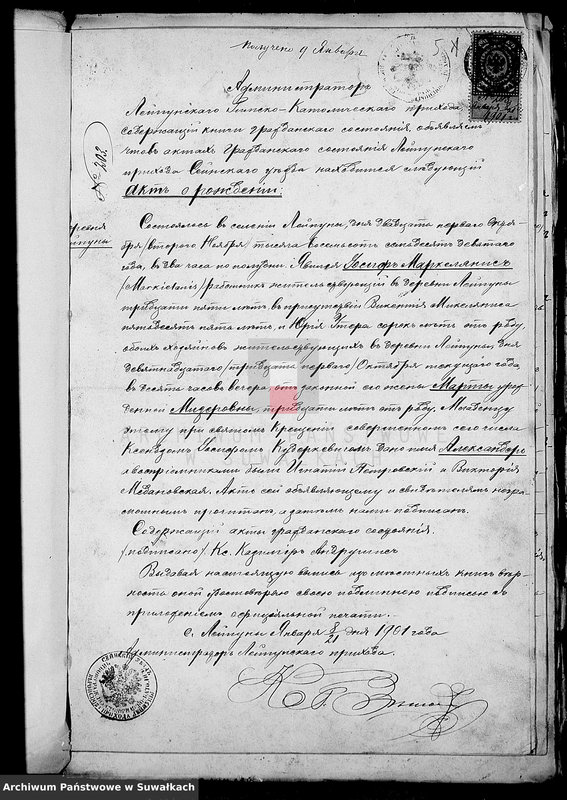 Получено 9 Января
5
Администраторъ
Лейпунскаго Римско-Католическаго прихода
содержащій книги гражданскаго состоянія, объявляетъ
что въ актахъ гражданскаго состоянія Лейпунскаго
прихода Сейнскаго уѣзда находится слѣдующій
Актъ о рожденіи:
№ 203.
Деревня
Лейпуны
Состоялось въ селеніи Лейпуны, дня двадцать перваго Октя-
бря /втораго Ноября/ тысяча восемьсотъ семьдесятъ девятаго
года, въ два часа по полудни. Явился Іосифъ Маркелянисъ
/Markielanis/ работникъ жительствующій въ деревни Лейпуны
тридцати пяти лѣтъ, въ присутствіи Викентія Микеляниса
пятидесяти пяти лѣтъ, и Юрія сорока лѣтъ отъ роду,
обоихъ хозяиновъ жительствующихъ въ деревни Лейпуны, дня
девятнадцатаго /тридцать перваго/ Октября текущаго года,
въ десять часовъ вечера, отъ законной его жены Марты урож-
денной тридцати лѣтъ отъ роду. Младенцу
этому при святомъ Крещеніи совершенномъ сего числа
Ксендзомъ Іосифомъ дано имя Александръ,
а воспріемниками были Игнатій Петровскій и Викторія
Актъ сей объявляющему и свидѣтелямъ негра-
мотнымъ прочитанъ, а затѣмъ нами подписанъ.
Содержащій акты гражданскаго состоянія.
/подписано/ Кс. Казиміръ Андрушисъ
Выдавая настоящую выпись изъ мѣстныхъ книгъ вѣр-
ность оной удостовѣряю своею подлинною подписью съ
приложеніемъ офиціальной печати.
с. Лейпуны Января 8/21 дня 1901 года
Администраторъ Лейпунскаго прихода.
ARCHIWUM PAŃSTWOWE
W SUWAŁKACH
Archiwum Państwowe w Suwałkach